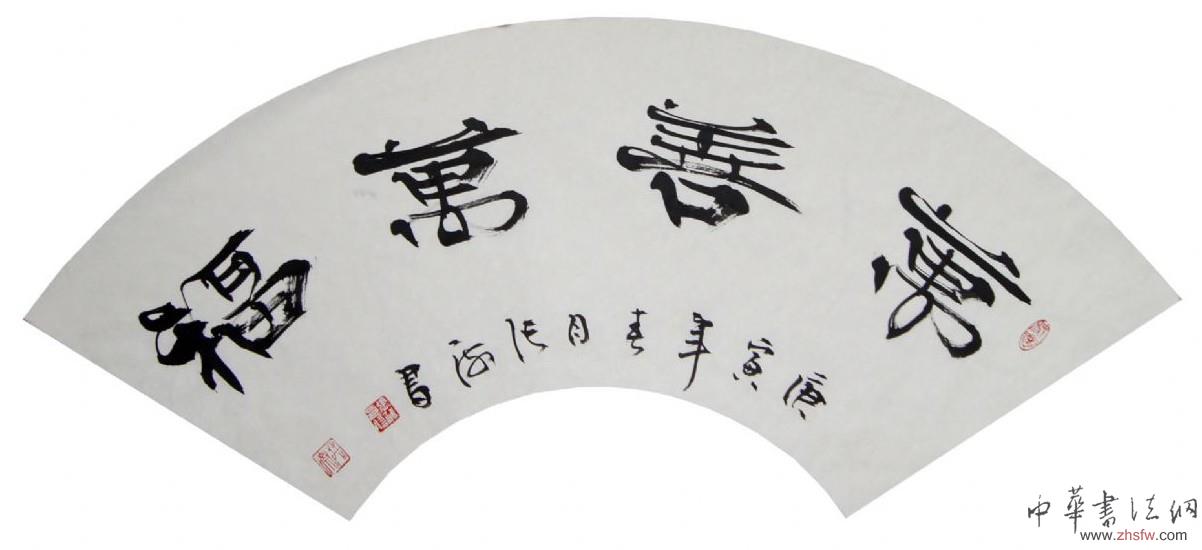 萬善萬福
庚寅年春月张书
中華書法網
www.zhsfw.com